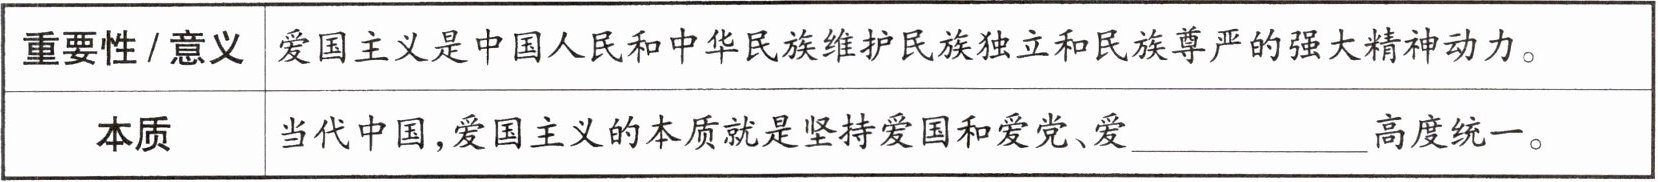 重要性/意义 爱国主义是中国人民和中华民族维护民族独立和民族尊严的强大精神动力。
本质 当代中国,爱国主义的本质就是坚持爱国和爱党、爱____________高度统一。